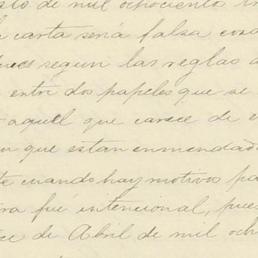 de mil ochociento
carta será falsa cosa
segun las reglas d
entre dos papeles que se
aquel que carece de
que estan enmendad
cuando hay motivos pa
fué intencional, pue
de Abril de mil och